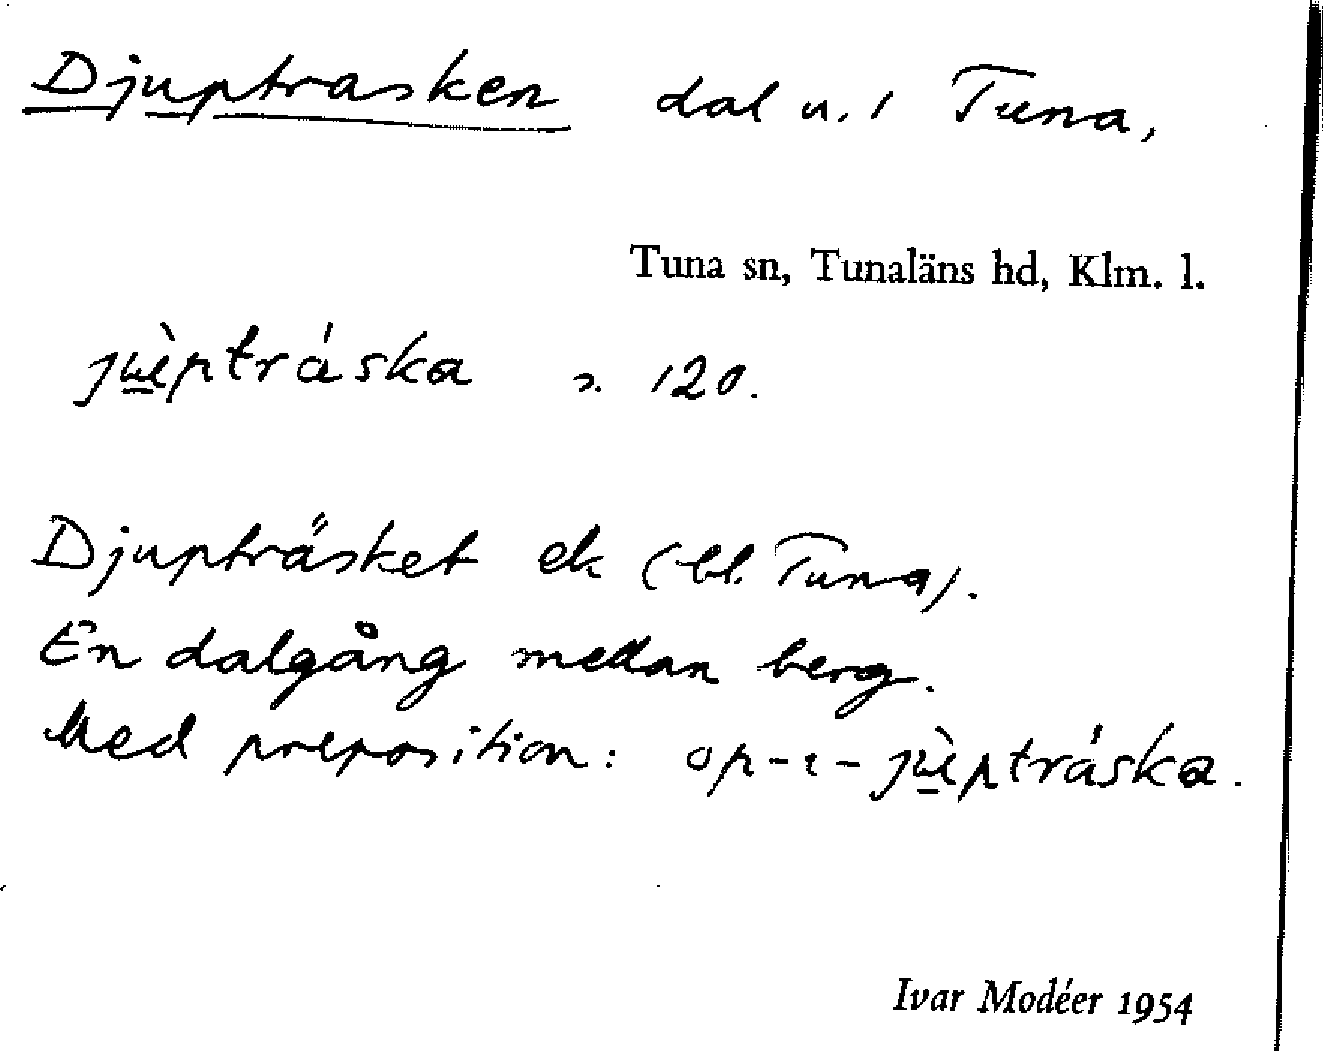 Djuptrasken dal n. i Tuna,
Tuna sn, Tunaläns hd, Klm. l.
jùptráska s. 120.
Djupträsket ek (bl. Tuna).
En dalgång mellan berg.
Med preposition: op-ɩ-jùptráska.
Ivar Modéer 1954